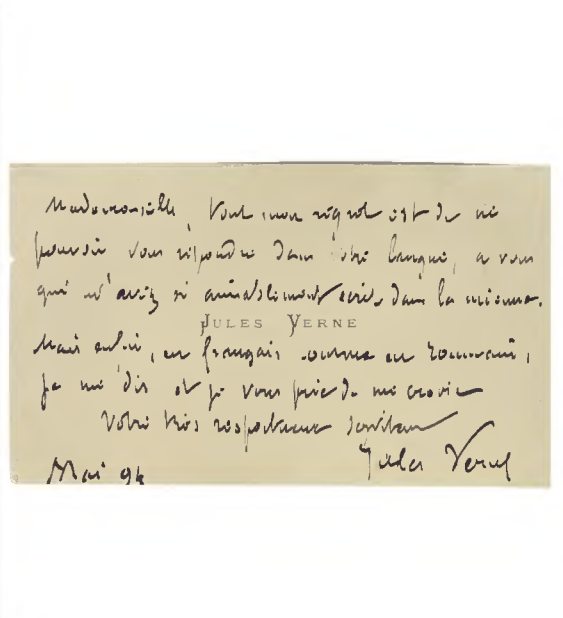 Mademoiselle, tout mon regret est de ne
pouvoir vous répondre dans votre langue, a vous
qui m'avez si aimablement écrit dans la mienne.
JULES VERNE
Mais enfin, en français comme en roumain,
je me dis et je vous prie de me croire
Votre très respectueux serviteur
Jules Verne
Mai 94